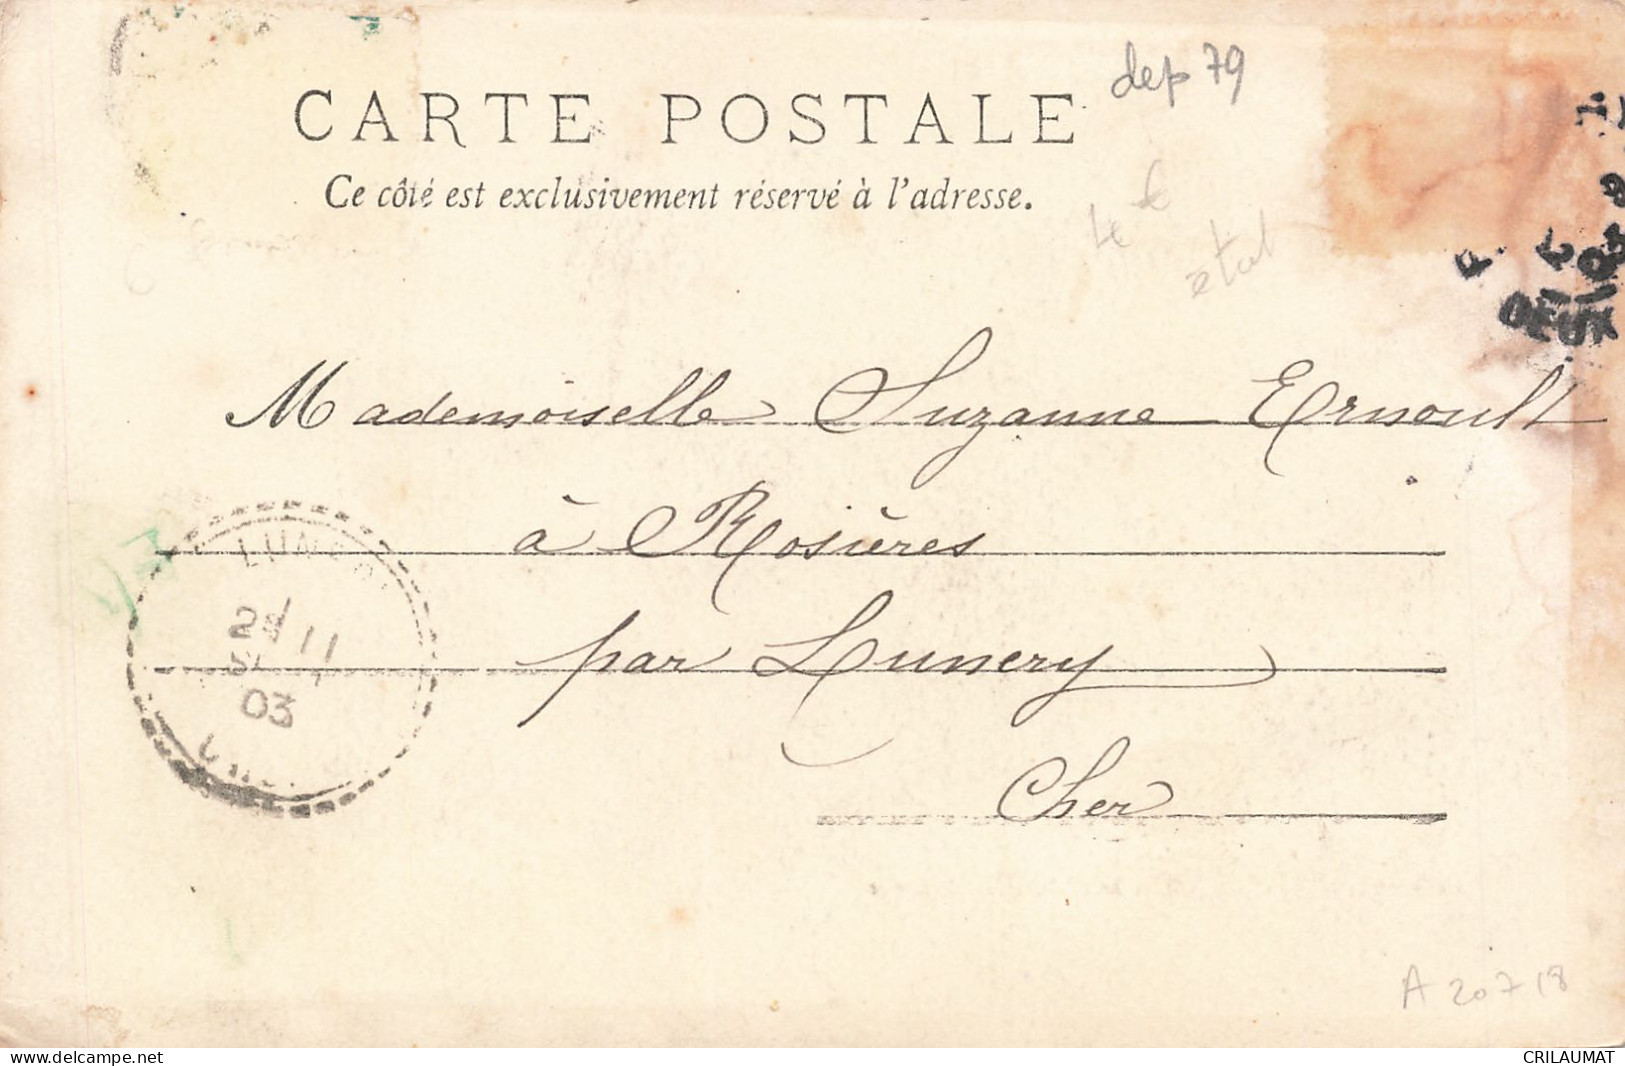 CARTE POSTALE
dep 79
Ce côté est exclusivement réservé à l'adresse.
4 €
état
DEUX
Mademoiselle Suzanne Ernoult
à Rosières
par Lunery
Cher
11
03
A 20718
www.delcampe.net
CRILAUMAT